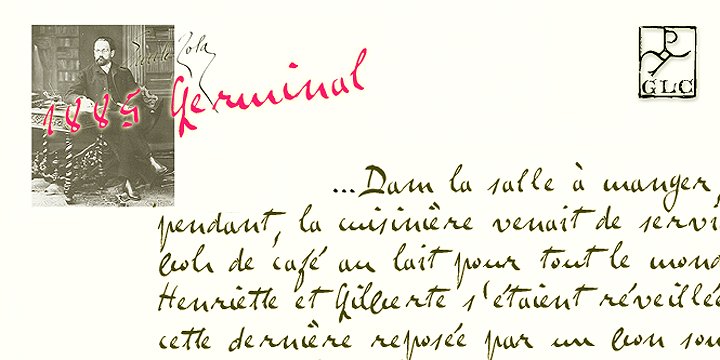 Emile Zola
1885 Germinal
GLC
...Dans la salle à manger,
pendant, la cuisinière venait de servi
bols de café au lait pour tout le mond
Henriette et Gilberte s'étaient réveillée
cette dernière reposée par un bon som